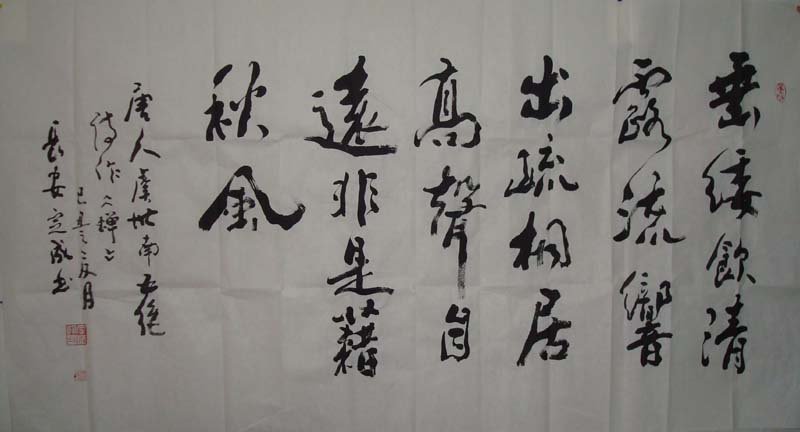 垂緌飲清
露流響
出疏桐居
高聲自
遠非是藉
秋風
唐人虞世南五絕
诗作《蟬》
己丑年二月
長安